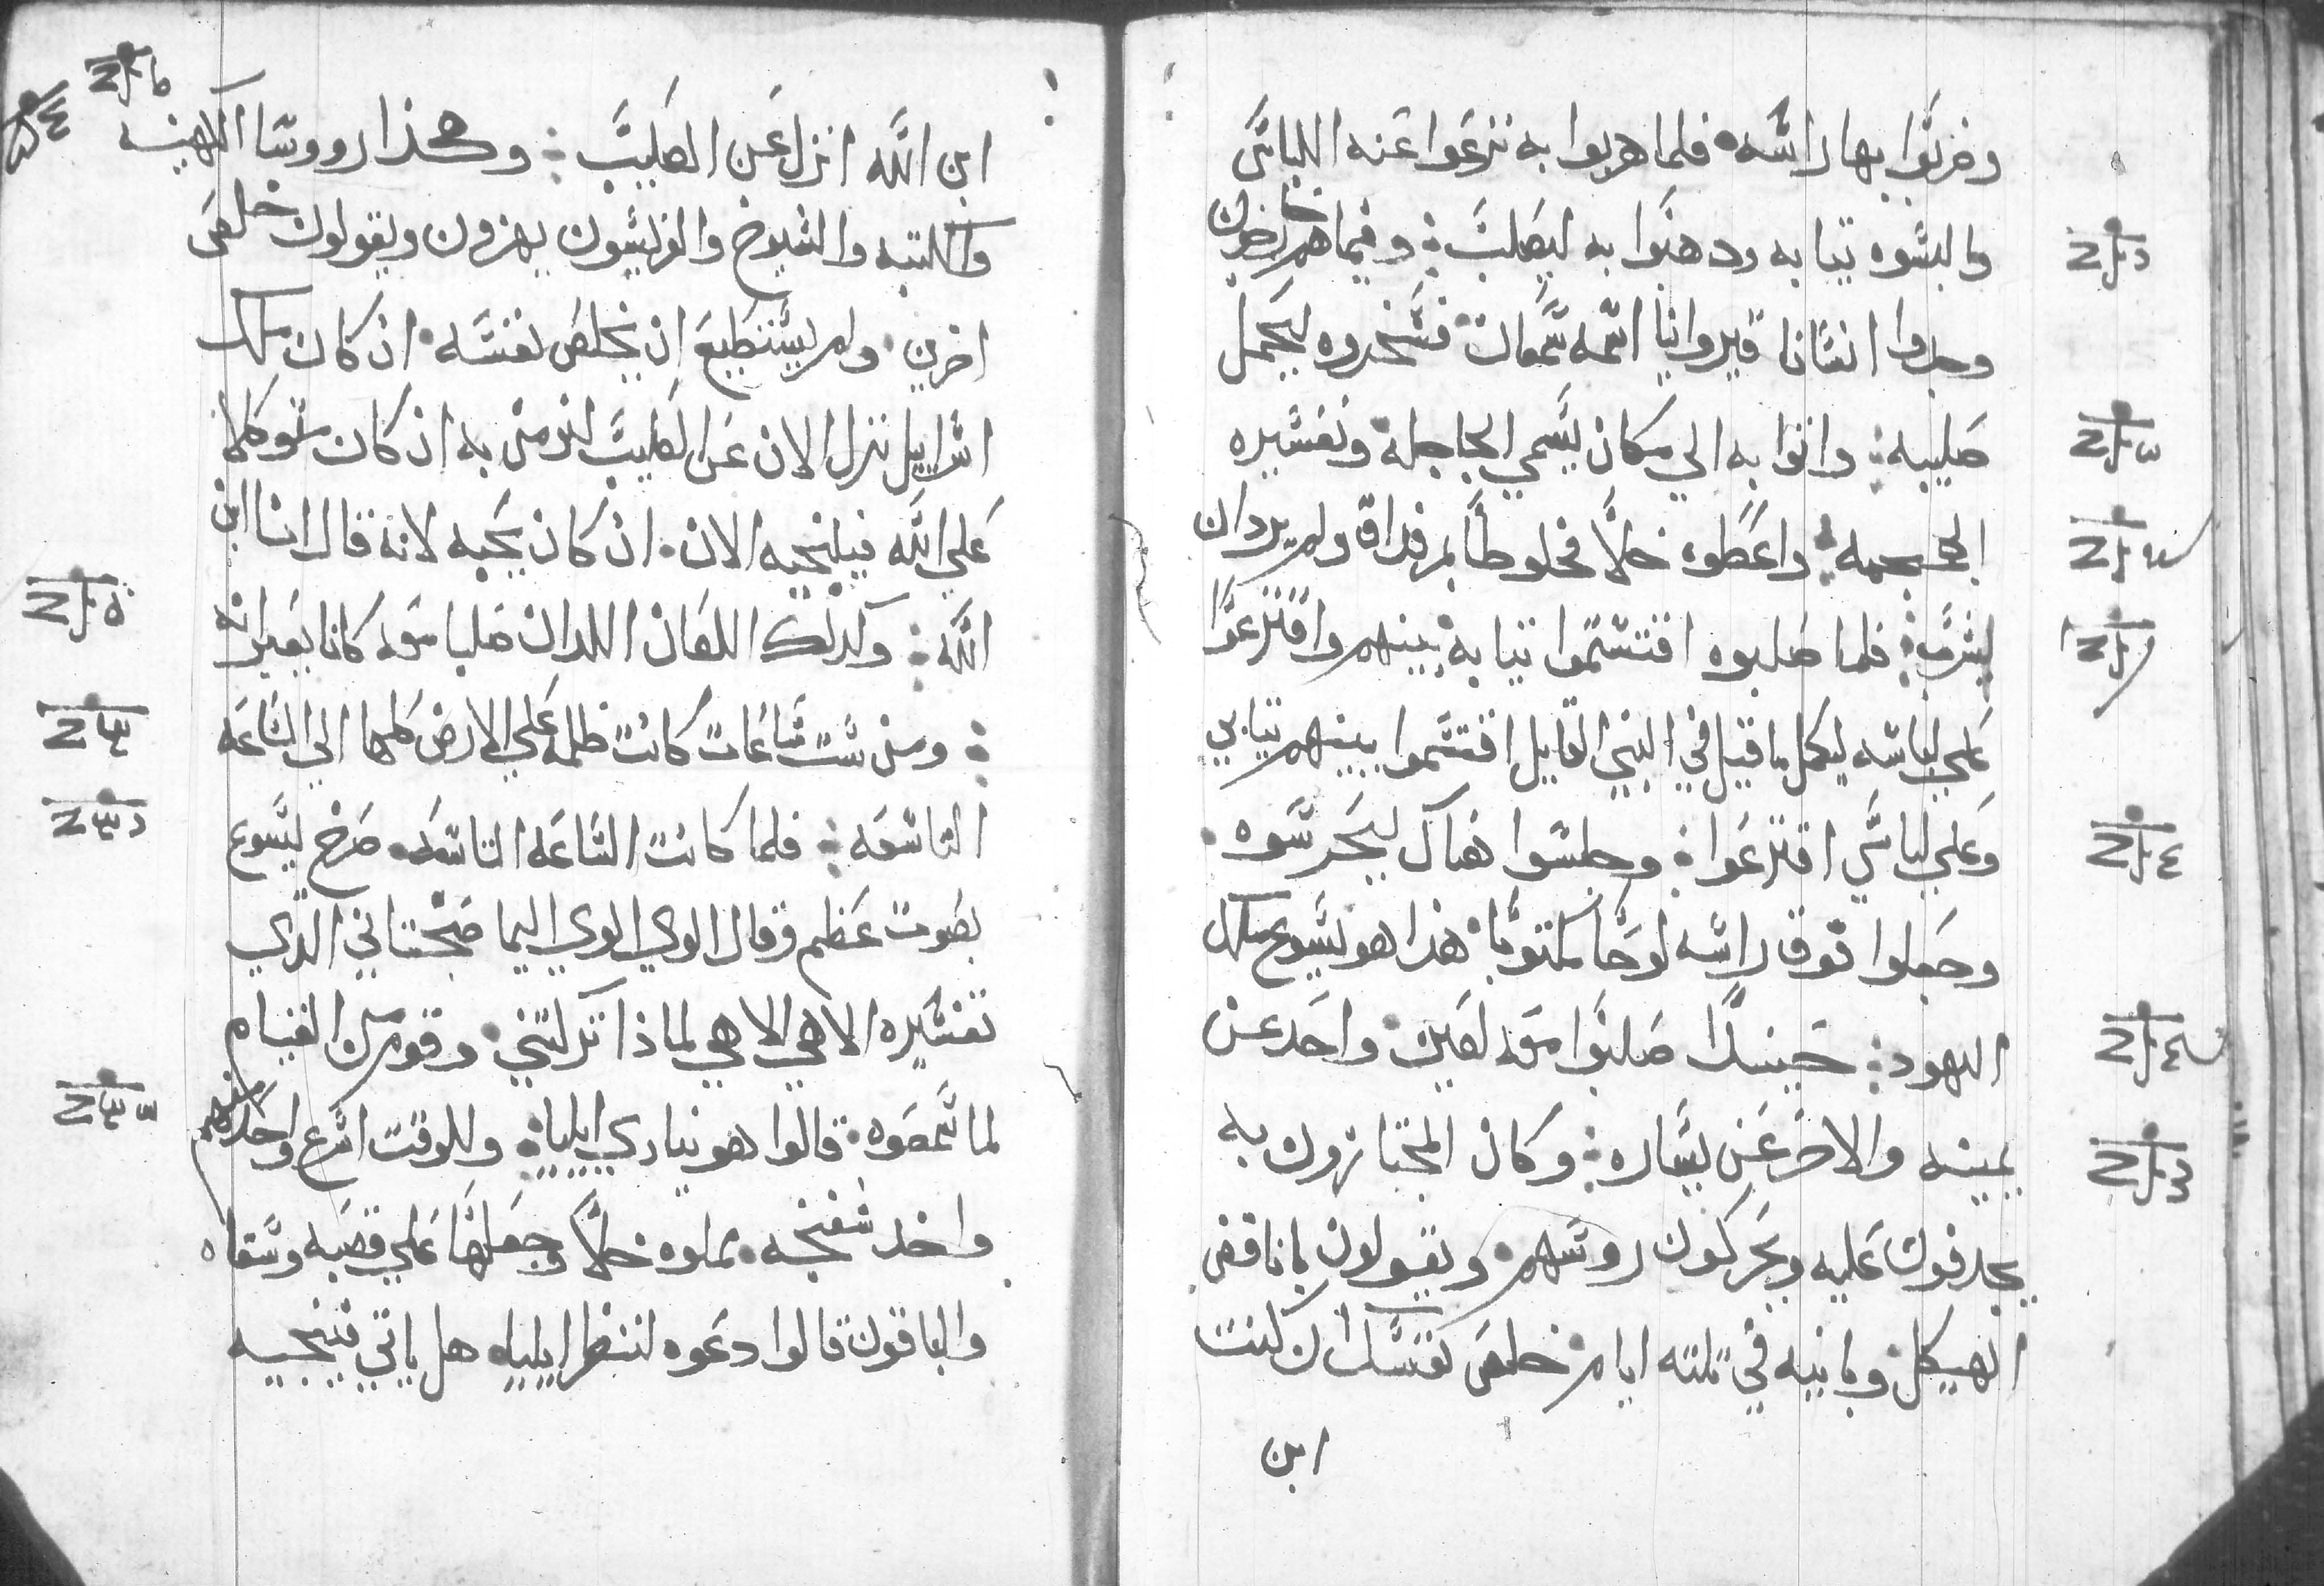 وضربوا بها راسه فلما هزوا به نزعوا عنه اللباس
والبسوه تيابه ودهبوا به ليصلب وفيما هم خارجون
وجدوا انسانا قيروانيا اسمه سمعان فسخروه ليحمل
صليبه واتوا به الي مكان يسمي الجاجلة وتفسيره
الجمجمه واعطوه خلا مخلوطا بمر فداق ولم يرد ان
يشرب فلما صلبوه اقتسموا تيابه بينهم واقترعوا
علي لباسه ليكمل ما قيل في النبي القايل اقتسموا بينهم تيابي
وعلي لباسي اقترعوا وجلسوا هناك ليحرسوه
وجعلوا فوق راسه لوحا مكتوبا هذا هو يسوع ملك
اليهود حينيدا صلبوا معه لصين واحد عن
يمينه والاخر عن يساره وكان المجتازون به
يجدفون عليه ويحركون روسهم ويقولون يا ناقض
الهيكل وبانيه في تلته ايام خلص نفسك ان كنت
ابن
ابن الله انزل عن الصليب وهكذا رووسا الكهنه
والكتبه والشيوخ والفريسيون يهزون ويقولون خلص
اخرين ولم يستطيع ان يخلص نفسه ان كان ملك
اسراييل ينزل الان عن الصليب لنومن به ان كان متوكلا
علي الله فينجيه الان ان كان يحبه لانه قال انا ابن
الله وكدلك اللصان اللدان صلبا معه كانا يعيرانه
ومن ست ساعات كانت ظلمه علي الارض كلها الي الساعه
التاسعه فلما كانت الساعه التاسعه صرخ يسوع
بصوت عظيم وقال الوي الوي اليما صبختاني الدي
تفسيره الاهي الاهي لماذا تركتني وقوم من القيام
لما سمعوه قالوا هو ينادي ايلياه وللوقت اسرع واحد منهم
واخد سفنجه مملوه خلا وجعلها علي قصبه وسقاه
والباقون قالوا دعوه لننظر ايلياه هل ياتي فينجيه